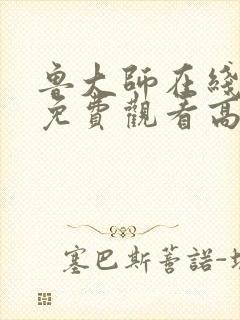 魯大師在綫
免費觀看高
塞巴斯蒂諾-